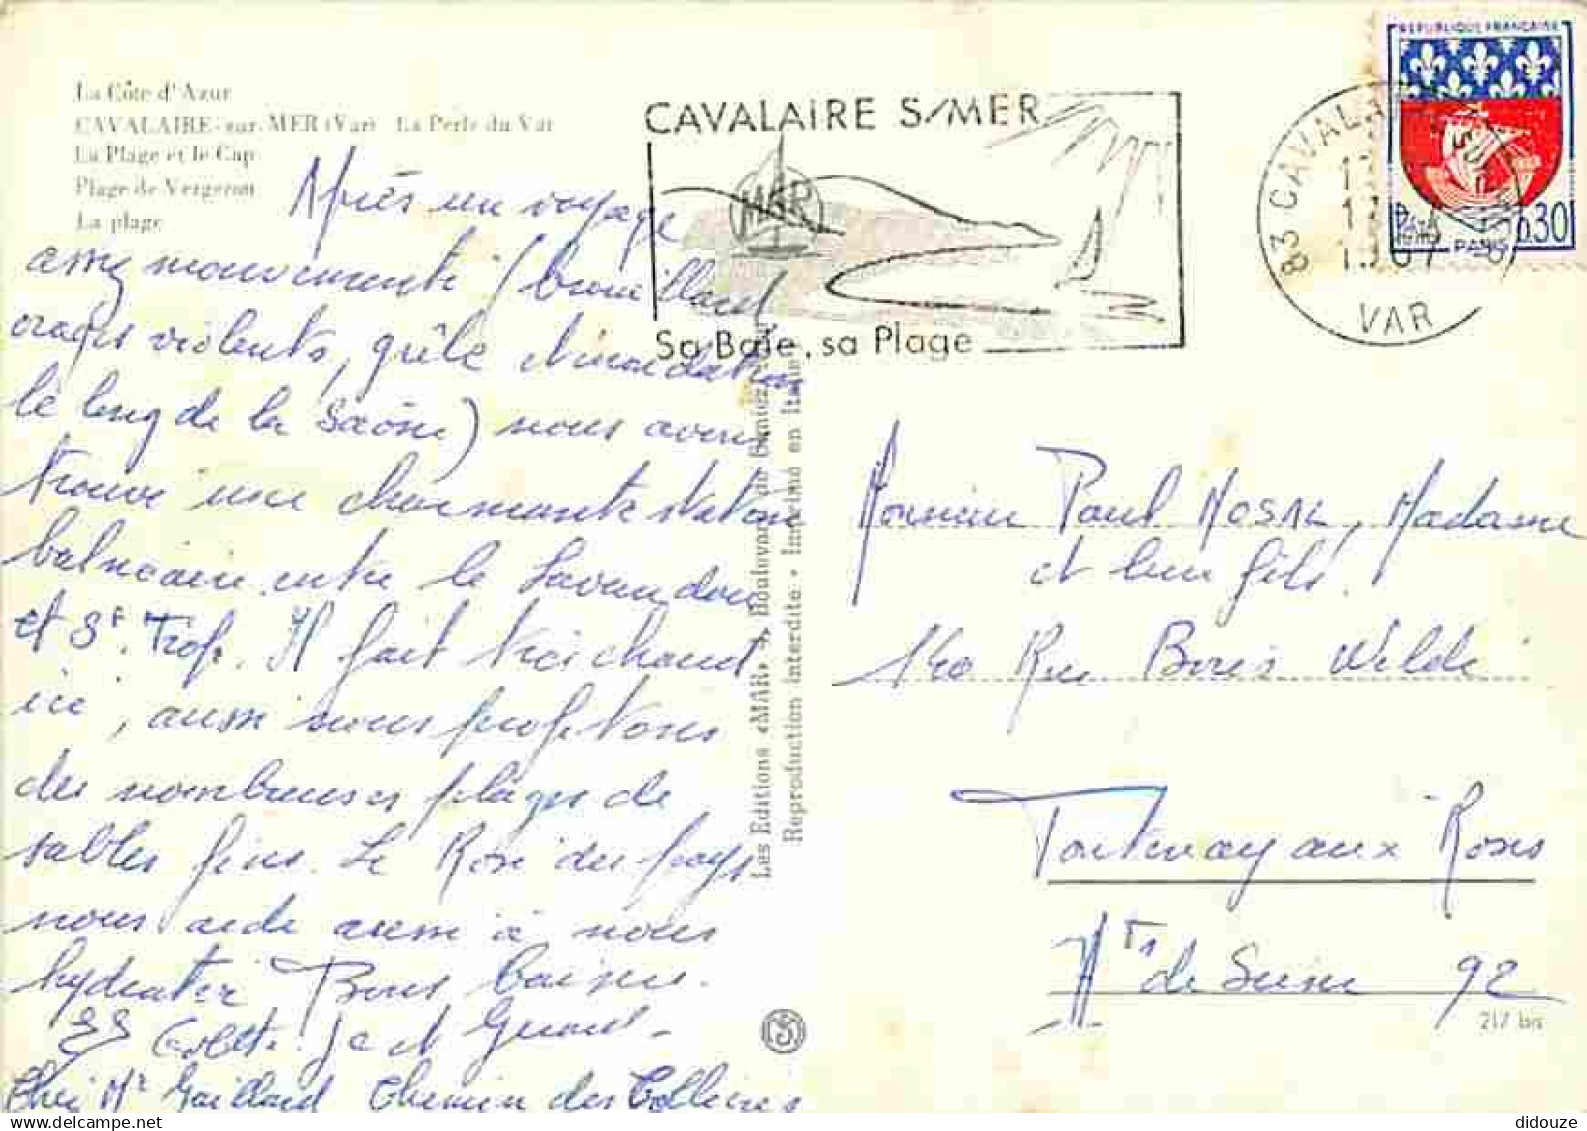 La Côte d'Azur
CAVALAIRE-sur-MER (Var) La Perle du Var
La Plage et le Cap
Plage de Vergeron
La plage
Après un voyage
assez mouvementé (brouillard
orages violents, grêle et inondation
le long de la Saône) nous avons
trouvé une charmante station
balnéaire entre le Lavandou
et St. Trop. Il fait très chaud
ici, aussi nous profitons
des nombreuses plages de
sables fins. Le Rosé du pays
nous aide aussi à nous
hydrater Bons baisers.
Colette. Je et
Chez Mr Gaillard Chemin des Collières
Les Editions «MAR» Boulevard de
Reproduction interdite - Imprimé en
CAVALAIRE S/MER
MAR
Sa Baie, sa Plage
83 CAVALAIRE S
VAR
REPUBLIQUE FRANÇAISE
0,30
PARIS
Monsieur Paul MOSAL, Madame
et leur fils.
140 Rue Boris Wildé
Fontenay aux Roses
Hts de Seine 92
217 bis
didouze